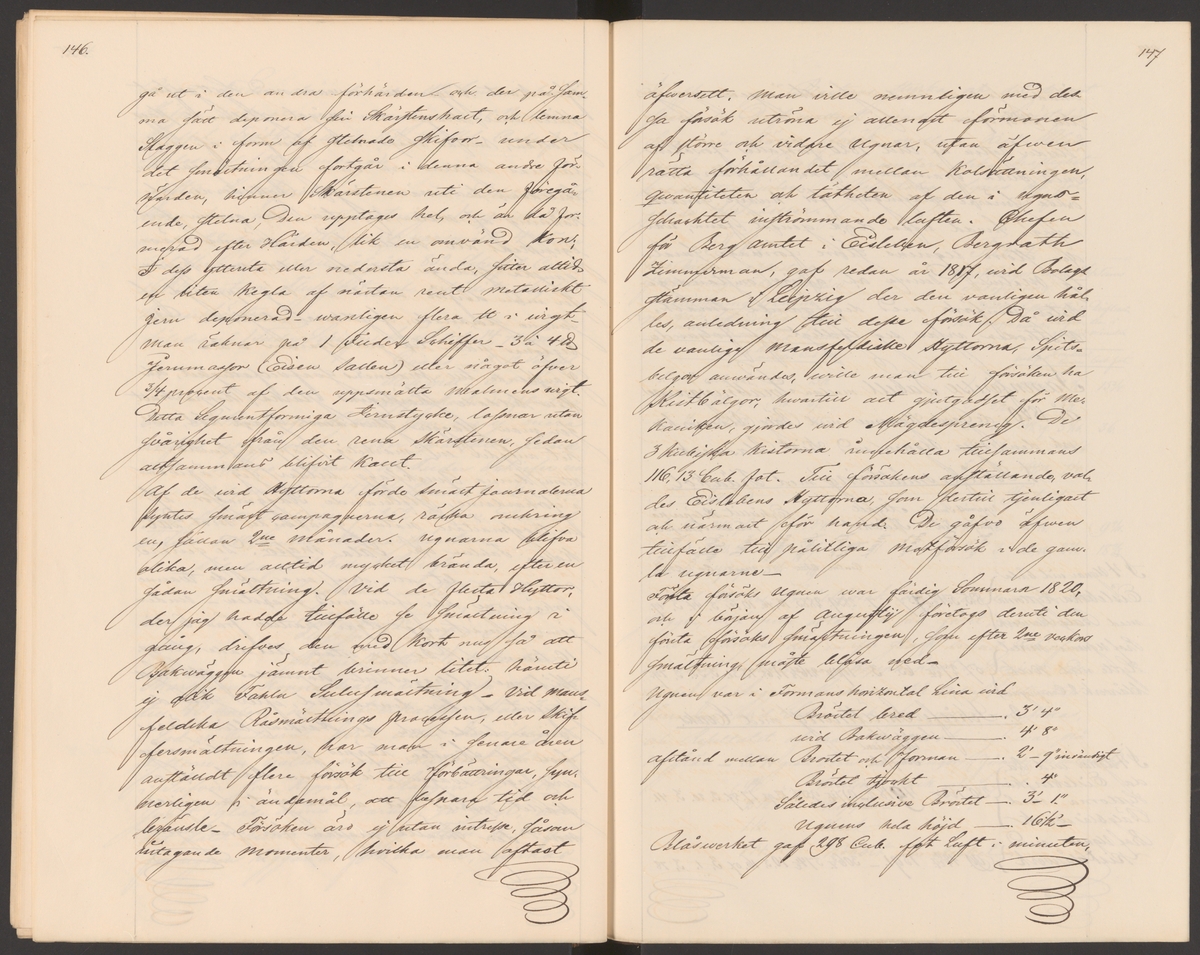 146.
gå ut i den andra förhärden och der på sam-
ma sätt deponera sin Skärstenshalt, och lemna
Slaggen i form af stelnade Skifvor – under
det smältningen fortgår i denna andre för-
härden, hinner Skärstenen uti den föregå-
ende, stelna, Den upptages hel, och än då for-
merad efter Härden, lik en omvänd Kon,
I dess ytterita eller nedersta ända, sitter alltid
en liten Kegla af nästan rent metalliskt
jern deponerad – wanligen flera ℔ i wigt
man räknar på 1 Fuder Schiffer – 3 à 4 ℔
Jernmassor (Eisen Sallen) eller något öfver
3/4 procent af den uppsmälta malmens wigt.
Detta Sigurentformiga Jernstycke, lossnar utan
svårighet från den rena Skärstenen, sedan
altsammans blifvit kallt.
Af de wid Hyttorna förde Smält journalerna
syntes smält campagnerna, räcka omkring
en, sällan 2ne månader. Ugnarna blifva
olika, men alltid mycket brända, efter en
sådan smältning. Vid de flesta Hyttor,
der jag hade tillfälle se smältning i
gång, drifves den med kort nus så att
Bakwäggen jämnt brinner litet. häruti
ej olik Fahlu Sulusmältning – Vid mans-
feldska Råsmältnings processen, eller Skif-
fersmältningen, har man i senare åren
anställdt flere försök till förbättringar, syn-
nerligen i ändamål, att bespara tid och
bränsle – Försöken äro ej utan intresse, såsom
uptagande momenter, hvilka man oftast
147
öfwersett. man wille nemnligen med des-
sa försök utröna ej allenast förmonen
af större och vidare Ugnar, utan äfwen
rätta förhållandet mellan Kolsättningen,
qwantiteten och tätheten af den i ugns-
schachtet inströmmande luften. Chefen
för Berg Amtet i Eisleben, Bergrath
Zimmerman, gaf redan år 1817, wid Bolags
stämman i Leipzig der den vanligen hål-
les, anledning till desse försök. Då wid
de vanliga Mansfeldiske Hyttorna, Spits-
belgor användes, wille man till försöken ha
Kistbälgor, hwartill ett gjutgodset för Me-
kaniken, gjordes wid Mägdesprung. De
3 kubiska Kistorna innehålla tillsammans
116,13 Cub. fot. Till försökens anställande, val-
des Eislebens Hyttorna, som hertil tjenligast
och närmast för hand. De gåfvo äfwen
tillfälle till pålitliga motförsök i de gam-
la ugnarne –
Första försöks Ugnen war färdig Sommarn 1820,
och i början af Augustij företogs deruti den
första försöks smältningen, som efter 2ne veckors
smältning, måste blåsa ned –
Ugnen var i Formans horizontal Linie wid
Bröstet bred —— . 3' 4"
wid Bakwäggen —— . 4' 8"
afstånd mellan Bröstet och Forman —— . 2' – 9" inwändigt
Bröstet tjockt —— . 4"
Således inclusive Bröstet —— . 3' – 1"
Ugnens hela höjd —— . 16½' –
Blåswerket gaf 298 Cub. fot Luft i minuten,